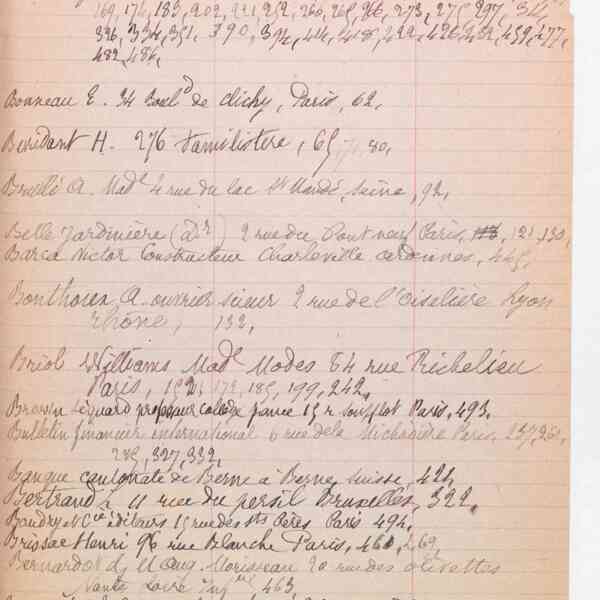 169, 174, 183, 202, 221, 252, 260, 265, 266, 273, 275, 297, 314,
326, 334, 351, 390, 394, 414, 418, 422, 426, 432, 459, 477,
482, 486,
Bonneau E. 34 Boul^d de Clichy, Paris, 62,
Beridant H. 276 familistère, 65, 71, 80,
Brullé A. Mad^e 4 rue du lac St Mandé, Seine, 92,
Belle Jardinière (D^r) 2 rue du Pont neuf Paris, 121, 130,
Barca Victor Constructeur Charleville ardennes, 445,
Bonthoux, A. ouvrier 2 rue de l'Oiselière Lyon
Rhône, 132,
Briol Williams Mad^e Modes 84 rue Richelieu
Paris, 172, 185, 199, 242,
Brown Séquard professeur collège france 15 r. soufflot Paris, 493,
Bulletin financier international 6 rue de la Michodière Paris, 257, 261,
285, 327, 332,
Banque cantonale de Berne à Berne, Suisse, 421,
Bertrand L 11 rue du persil Bruxelles, 322,
Baudry et Cie éditeurs 15 rue des Sts Pères Paris 494,
Brissac Henri 96 rue Blanche Paris, 461, 469
Bernardot d, M Aug. Morisseau 20 rue des olivettes
Nantes Loire Inf^re 463